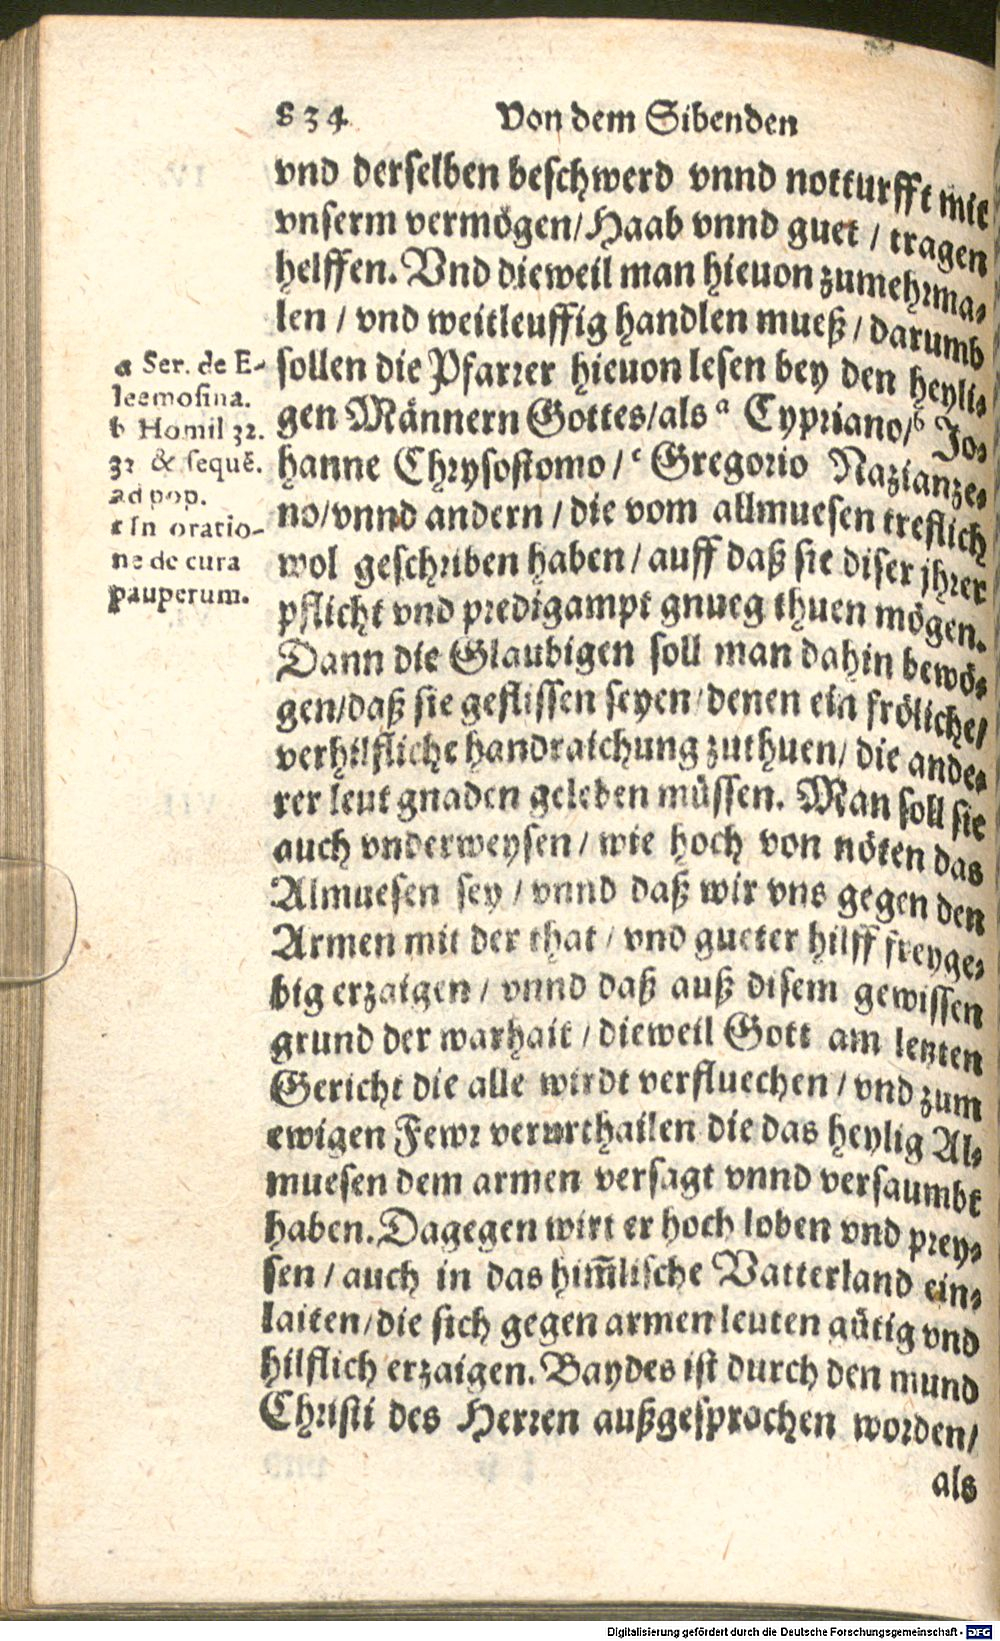 834 Von dem Sibenden
vnd derselben beschwerd vnnd notturfft mit
vnserm vermögen/Haab vnnd guet / tragen
helffen. Vnd dieweil man hieuon zumehrma-
len / vnd weitleuffig handlen mueß / darumb
sollen die Pfarrer hieuon lesen bey den heyli-
gen Männern Gottes/als a Cypriano/ b Jo-
hanne Chrysostomo / c Gregorio Nazianze-
no/vnnd andern / die vom allmuesen treflich
wol geschriben haben / auff daß sie diser jhrer
pflicht vnd predigampt gnueg thuen mögen.
Dann die Glaubigen soll man dahin bewö-
gen/daß sie geflissen seyen/denen ein fröliche/
verhilfliche handraichung zuthuen/ die ande-
rer leut gnaden geleben müssen. Man soll sie
auch vnderweysen / wie hoch von nöten das
Almuesen sey / vnnd daß wir vns gegen den
Armen mit der that / vnd gueter hilff freyge-
big erzaigen / vnnd daß auß disem gewissen
grund der warhait / dieweil Gott am letzten
Gericht die alle wirdt verfluechen / vnd zum
ewigen Fewr verurthailen die das heylig Al-
muesen dem armen versagt vnnd versaumbt
haben. Dagegen wirt er hoch loben vnd prey-
sen / auch in das him̄lische Vatterland ein-
laiten/die sich gegen armen leuten gütig vnd
hilflich erzaigen. Baydes ist durch den mund
Christi des Herren außgesprochen worden/
als
a Ser. de E-
leemosina.
b Homil 32.
32 & sequē.
ad pop.
c In oratio-
ne de cura
pauperum.
Digitalisierung gefördert durch die Deutsche Forschungsgemeinschaft - DFG